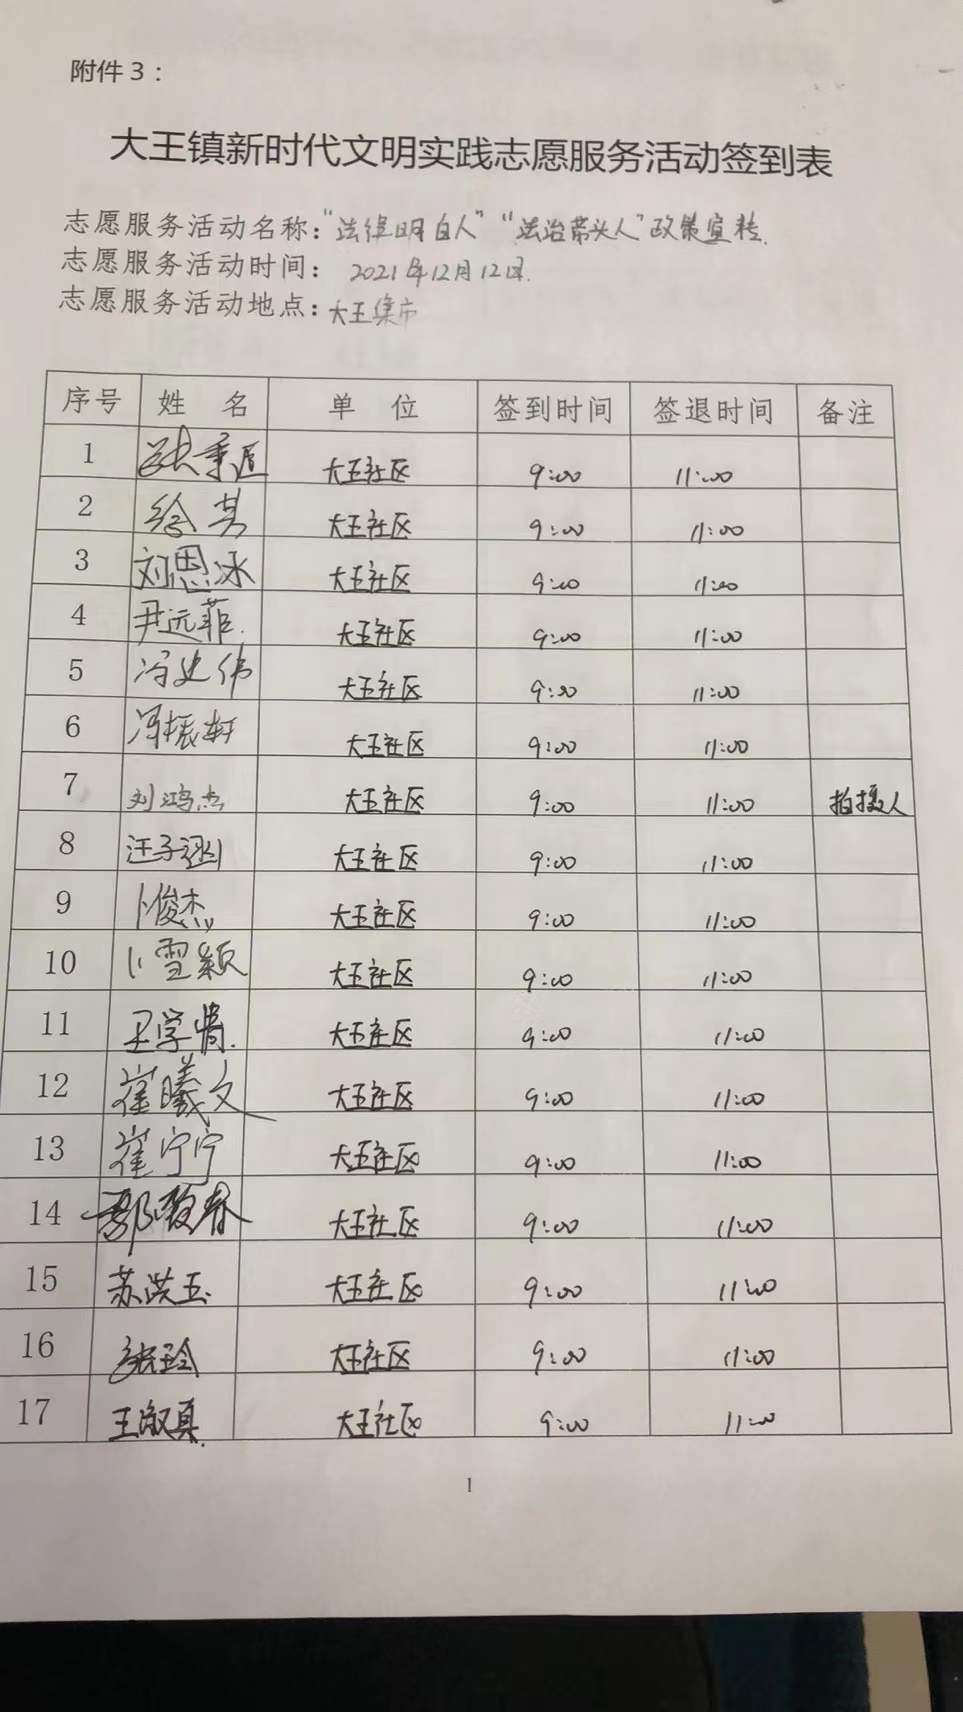 附件3：
大王镇新时代文明实践志愿服务活动签到表
志愿服务活动名称：“法律明白人”“法治带头人”政策宣传.
志愿服务活动时间： 2021年12月12日.
志愿服务活动地点：大王集市
序号 姓 名 单 位 签到时间 签退时间 备注
1 大王社区 9:00 11:00
2 徐芳 大王社区 9:00 11:00
3 刘恩冰 大王社区 9:00 11:00
4 尹远菲. 大王社区 9:00 11:00
5 冯建伟 大王社区 9:00 11:00
6 冯振轩 大王社区 9:00 11:00
7 刘鸿杰 大王社区 9:00 11:00 拍摄人
8 汪子涵 大王社区 9:00 11:00
9 卜俊杰 大王社区 9:00 11:00
10 卜雪颖 大王社区 9:00 11:00
11 大王社区 9:00 11:00
12 崔曦文 大王社区 9:00 11:00
13 崔宁宁 大王社区 9:00 11:00
14 大王社区 9:00 11:00
15 苏洪玉 大王社区 9:00 11:00
16 张玲 大王社区 9:00 11:00
17 王淑真 大王社区 9:00 11:00
1